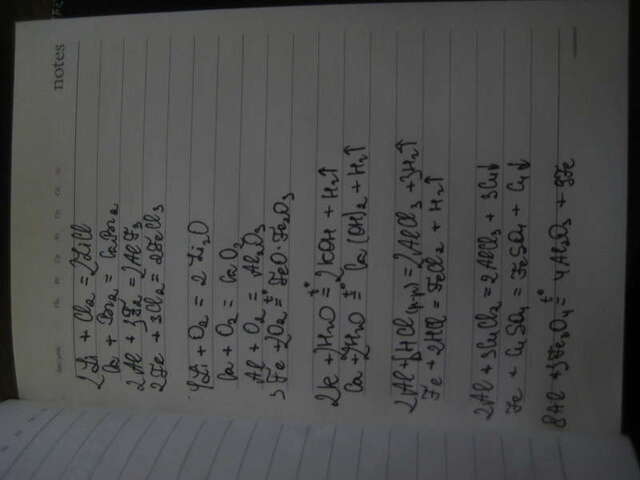 notes
2Li + Cl₂ = 2LiCl
Ca + Br₂ = CaBr₂
2Al + 3F₂ = 2AlF₃
2Fe + 3Cl₂ = 2FeCl₃
4Li + O₂ = 2Li₂O
Ca + O₂ = CaO₂
Al + O₂ = Al₂O₃
3Fe + 2O₂ t°= FeO·Fe₂O₃
2K + 2H₂O t°= 2KOH + H₂↑
Ca + 2H₂O t°= Ca(OH)₂ + H₂↑
2Al + 6HCl(р-р) = 2AlCl₃ + 3H₂↑
Fe + 2HCl = FeCl₂ + H₂↑
2Al + 3CuCl₂ = 2AlCl₃ + 3Cu↓
Fe + CuSO₄ = FeSO₄ + Cu↓
8Al + 3Fe₃O₄ t°= 4Al₂O₃ + 9Fe